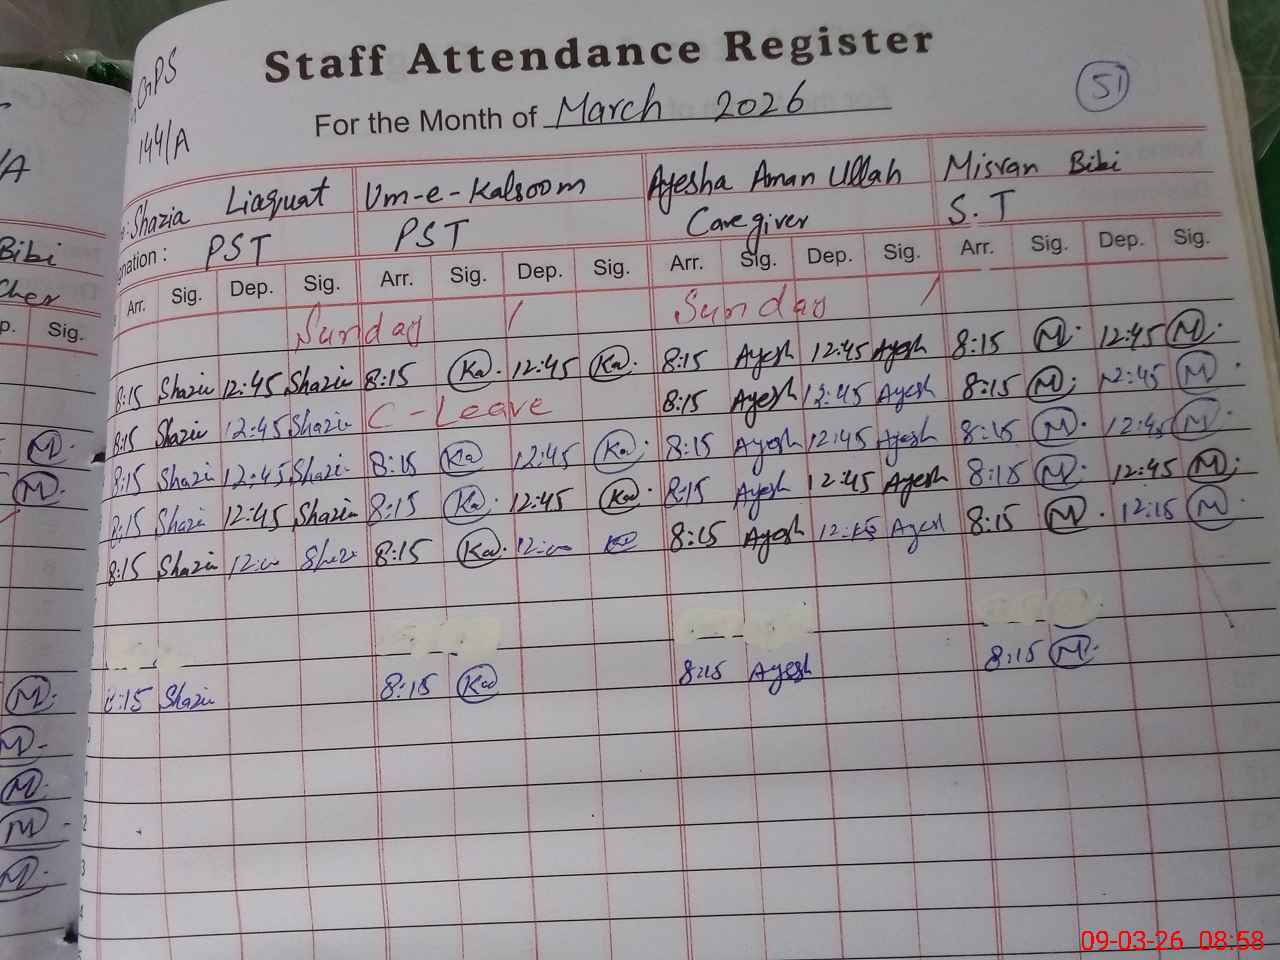 GPS
144/A
Staff Attendance Register
For the Month of March 2026
51
/A
Shazia Liaquat Um-e-Kalsoom Ayesha Aman Ullah Misran Bibi
PST PST Caregiver S.T
Bibi
Arr. Sig. Dep. Sig. Arr. Sig. Dep. Sig. Arr. Sig. Dep. Sig. Arr. Sig. Dep. Sig.
p. Sig.
Sunday Sunday
8:15 Shazia 12:45 Shazia 8:15 Ka 12:45 Ka 8:15 Ayesh 12:45 Ayesh 8:15 M 12:45 M
8:15 Shazia 12:45 Shazia C-Leave 8:15 Ayesh 12:45 Ayesh 8:15 M 12:45 M
8:15 Shazia 12:45 Shazia 8:15 Ka 12:45 Ka 8:15 Ayesh 12:45 Ayesh 8:15 M 12:45 M
8:15 Shazia 12:45 Shazia 8:15 Ka 12:45 Ka 8:15 Ayesh 12:45 Ayesh 8:15 M 12:45 M
8:15 Shazia 12:00 Shazi 8:15 Ka 12:00 8:15 Ayesh 12:15 Ayesh 8:15 M 12:15 M
8:15 Shazia 8:15 Ka 8:15 Ayesh 8:15 M
M
M
M
M
M
M
M
09-03-26 08:58